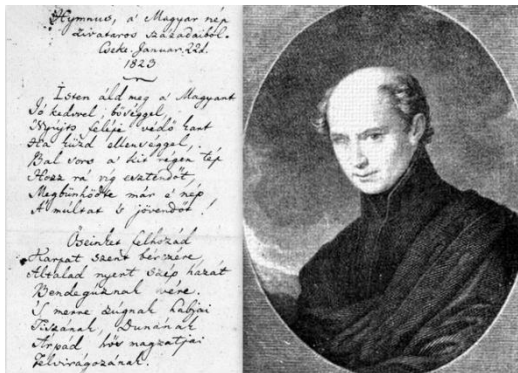 Hymnus, a' Magyar nép
zivataros századaiból.
Cseke. Januar. 22d.
1823
Isten áld meg a' Magyart
Jó kedvvel, bőséggel,
Nyújts feléje védő kart
Ha küzd ellenséggel,
Bal sors a' kit régen tép
Hozz rá víg esztendőt,
Megbünhödte már e' nép
A' multat 's jövendőt!
Őseinket felhozád
Kárpát szent bérczére,
Általad nyert szép hazát
Bendegúznak vére.
'S merre zúgnak habjai
Tiszának, Dunának
Árpád hős magzatjai
Felvirágozának.